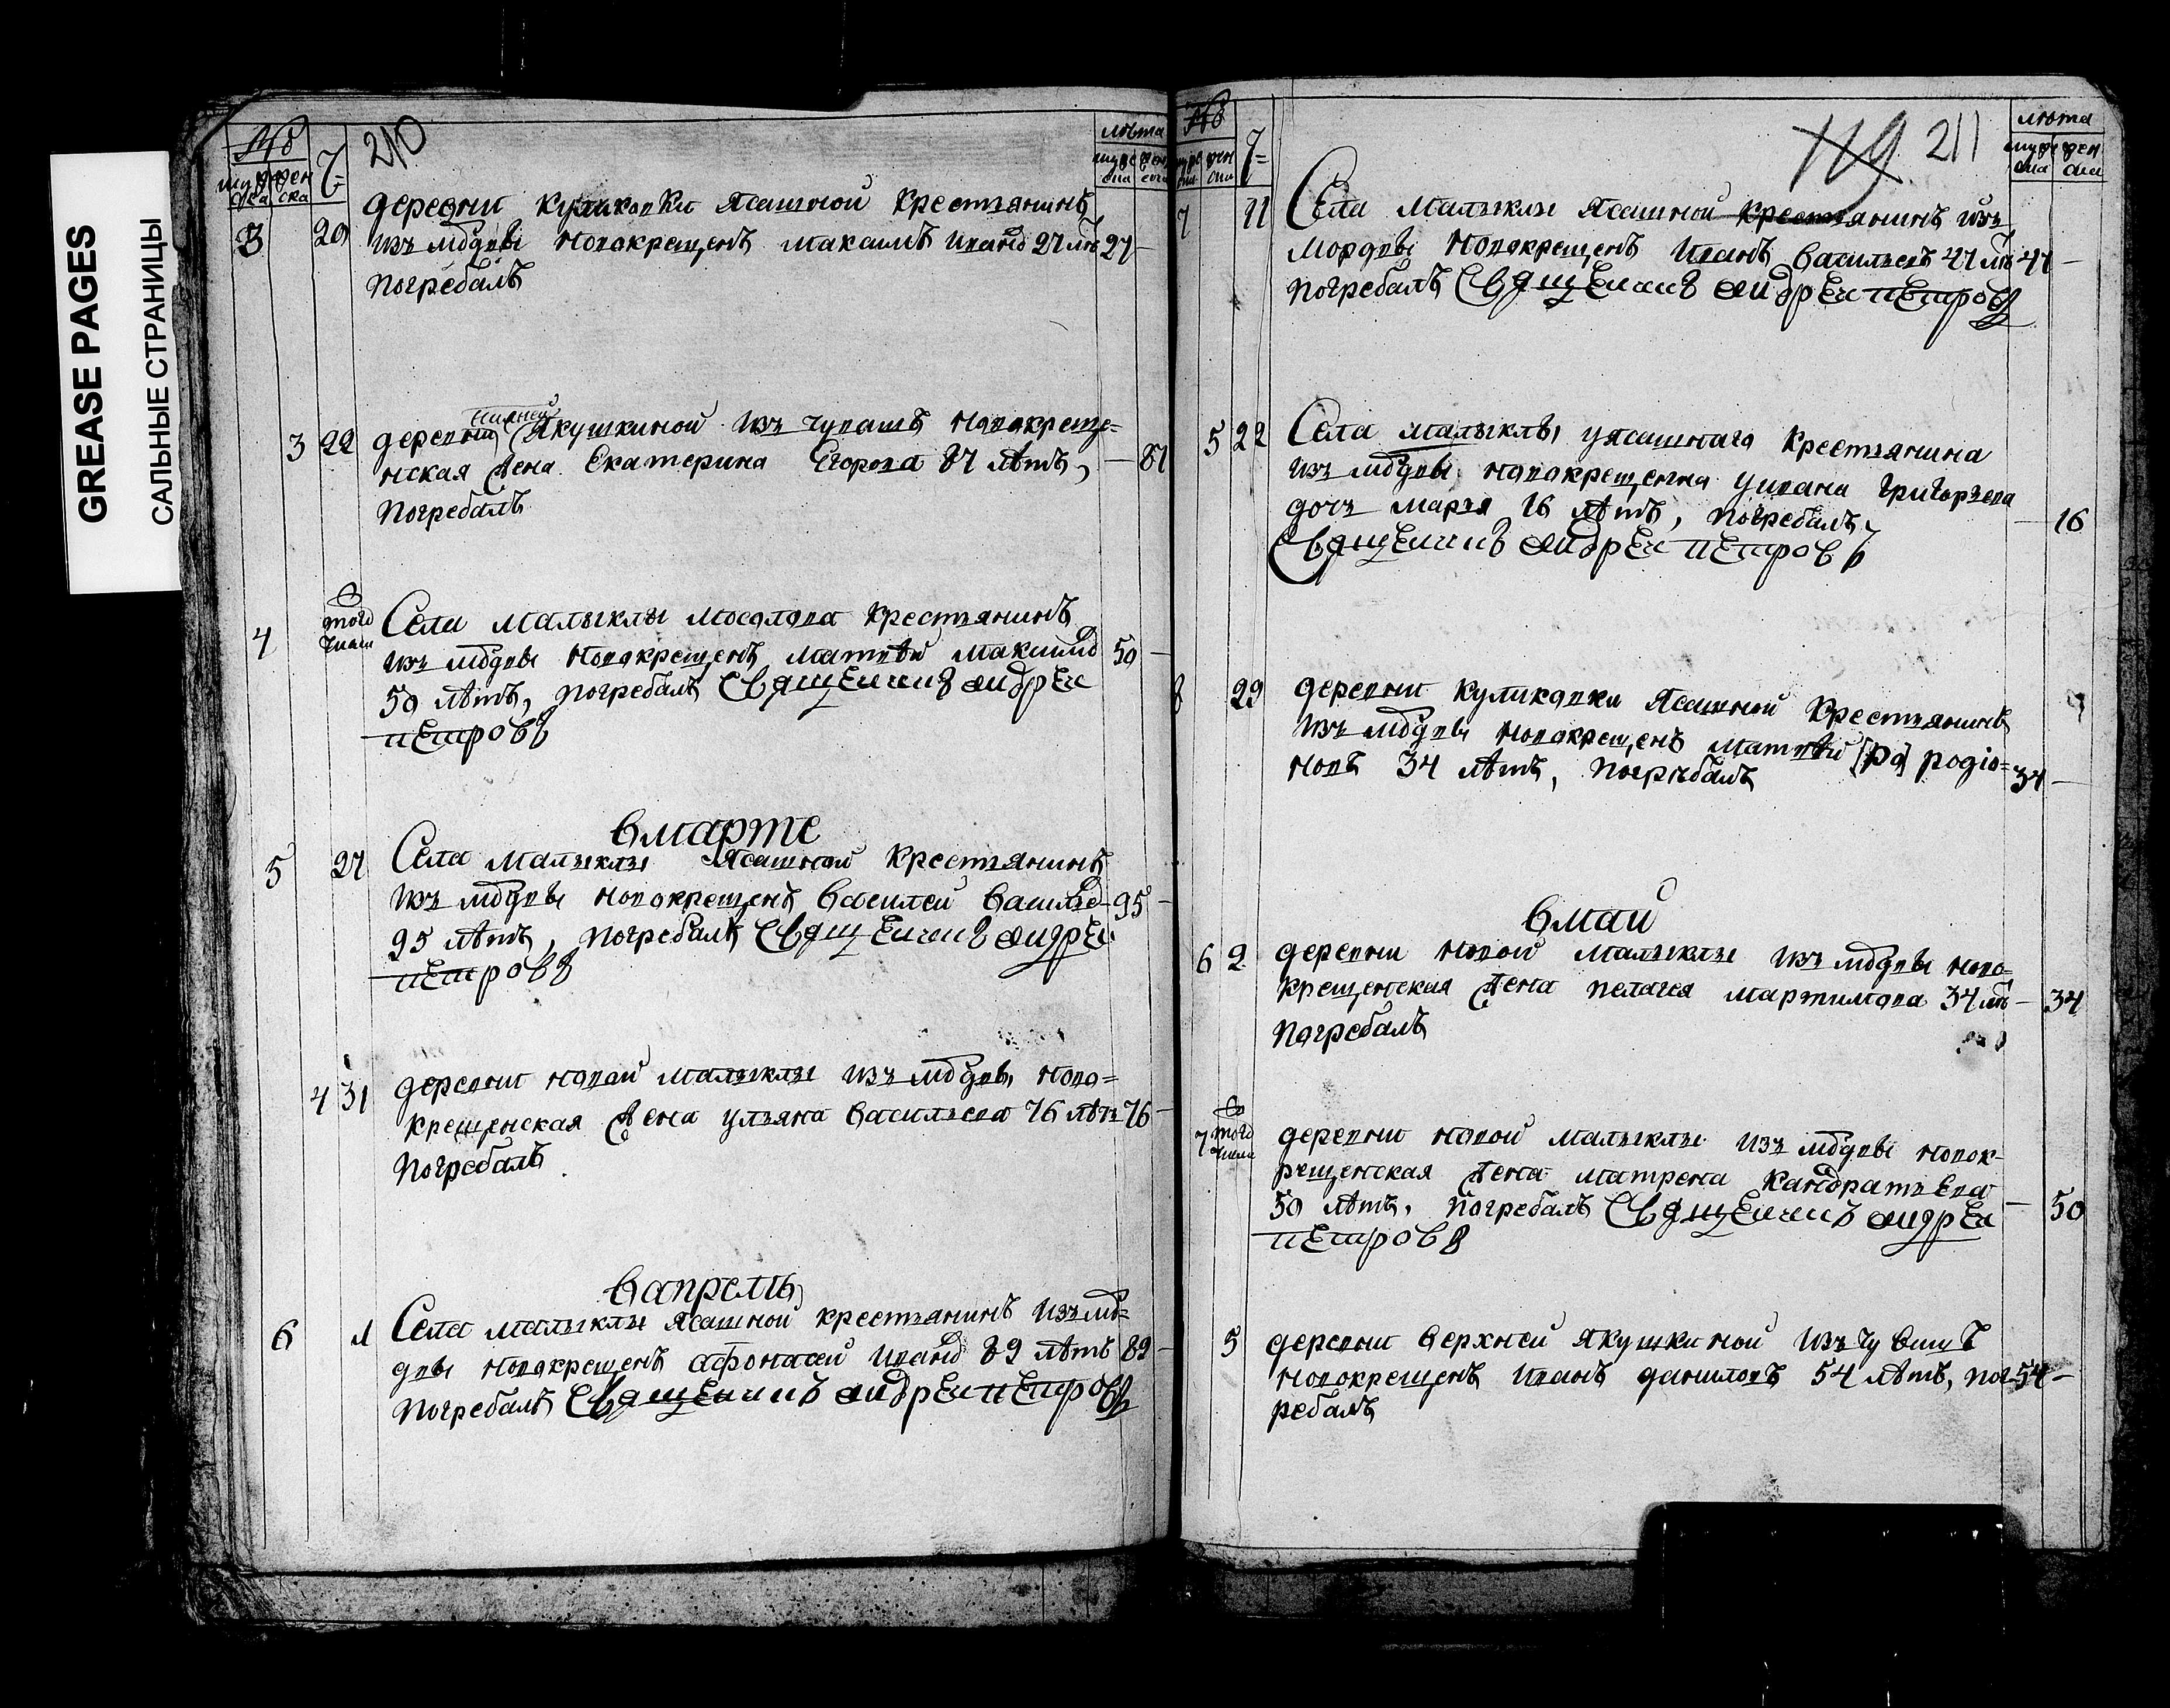 GREASE PAGES
САЛЬНЫЕ СТРАНИЦЫ
210
№
муже ска
жен ска
Ч
лѣта
муже ска
женска
3 20 деревни куликовки Ясашной крестьянинъ
изъ мордвы новокрещенъ макаимъ иванов 27 лѣ 27 —
погребалъ
нижней
3 22 деревни Якушкиной изъ чувашъ новокреще=
нская жена Екатерина Егорова 87 лѣтъ, — 87
погребалъ
4 того числа Села малыклы мосолова крестьянинъ
изъ мордвы новокрещенъ матвѣй максимов 50 —
50 лѣтъ, погребалъ Священникъ андреи
петровъ
в марте
5 27 Села малыклы Ясашной крестьянинъ
изъ мордвы новокрещенъ василей василье 95 —
95 лѣтъ, погребалъ Священникъ андреи
петровъ
4 31 деревни новой малыклы изъ мордвы ново=
крещенская жена ульяна васильева 76 лѣтъ 76 —
погребалъ
в апрель
6 1 Села малыклы Ясашной крестьянинъ изъ мо=
рдвы новокрещенъ афонасей иванов 89 лѣтъ 89 —
погребалъ Священникъ андреи петровъ
№
119 211
лѣта
муже ска
жен ска
7 11 Села малыклы Ясашной крестьянинъ изъ
мордвы новокрещенъ иванъ васильевъ 47 лѣ 47 —
погребалъ Священникъ андреи петровъ
5 22 Села малыклы уясашнаго крестьянина
изъ мордвы новокрещенна уивана григорьева
дочь марья 16 лѣтъ, погребалъ — 16
Священникъ андреи петровъ
8 29 деревни куликовки Ясашной крестьянинъ
изъ мордвы новокрещенъ матвѣй [ро] родіо=
новъ 34 лѣтъ, погрѣбалъ 34 —
в маи
6 2 деревни новой малыклы изъ мордвы ново=
крещенская жена пелагея мартимова 34 лѣ — 34
погребалъ
7 того числа деревни новой малыклы изъ мордвы новок-
рещенская жена матрена кандратьева
50 лѣтъ, погребалъ Священникъ андреи — 50
петровъ
5 деревни верхней якушкиной изъ чувашъ
новокрещенъ иванъ даниловъ 54 лѣтъ, пог 54 —
ребалъ